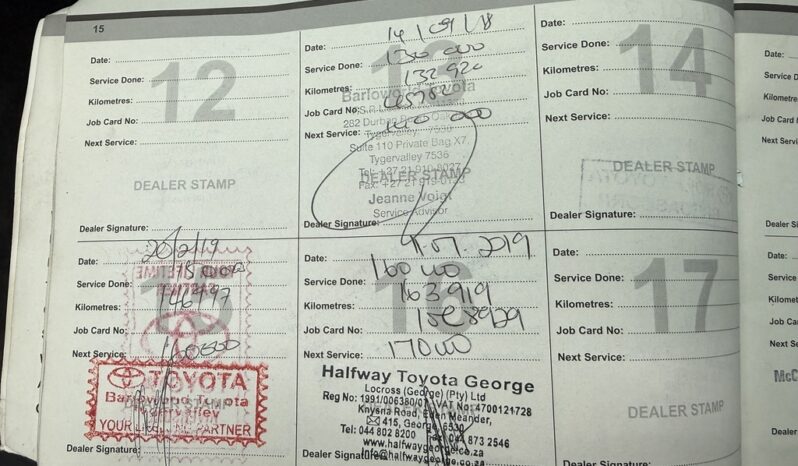 15
12
Date:
Service Done:
Kilometres:
Job Card No:
Next Service:
DEALER STAMP
Dealer Signature:
13
Date: 14/09/18
Service Done: 130 000
Kilometres: 132 920
Job Card No:
Next Service: 140 000
Barloworld Toyota
Tygervalley 7536
Suite 110 Private Bag X7,
Tygervalley 7536
DEALER STAMP
Jeanne Voigt
Service Advisor
Dealer Signature:
14
Date:
Service Done:
Kilometres:
Job Card No:
Next Service:
DEALER STAMP
TOYOTA
Dealer Signature:
15
Date: 20/2/19
Service Done:
Kilometres: 146797
Job Card No:
Next Service: 160000
TOYOTA
Barloworld Toyota
Tygervalley
YOUR LIFETIME PARTNER
Dealer Signature:
16
Date: 07.2019
Service Done: 160 000
Kilometres: 163919
Job Card No:
Next Service: 170 000
Halfway Toyota George
Locross (George) (Pty) Ltd
Reg No: 1991/006380/07 VAT No: 4700121728
Knysna Road, Eden Meander,
415, George, 6530
Tel: 044 802 8200 Fax: 044 873 2546
www.halfwaygeorge.co.za
info@halfwaygeorge.co.za
Dealer Signature:
17
Date:
Service Done:
Kilometres:
Job Card No:
Next Service:
DEALER STAMP
Dealer Signature:
Date:
Kilometres
Job Card
Next Servi
Dealer Si
Date:
Service D
Kilometre
Job Car
Next Se
McC
Dealer